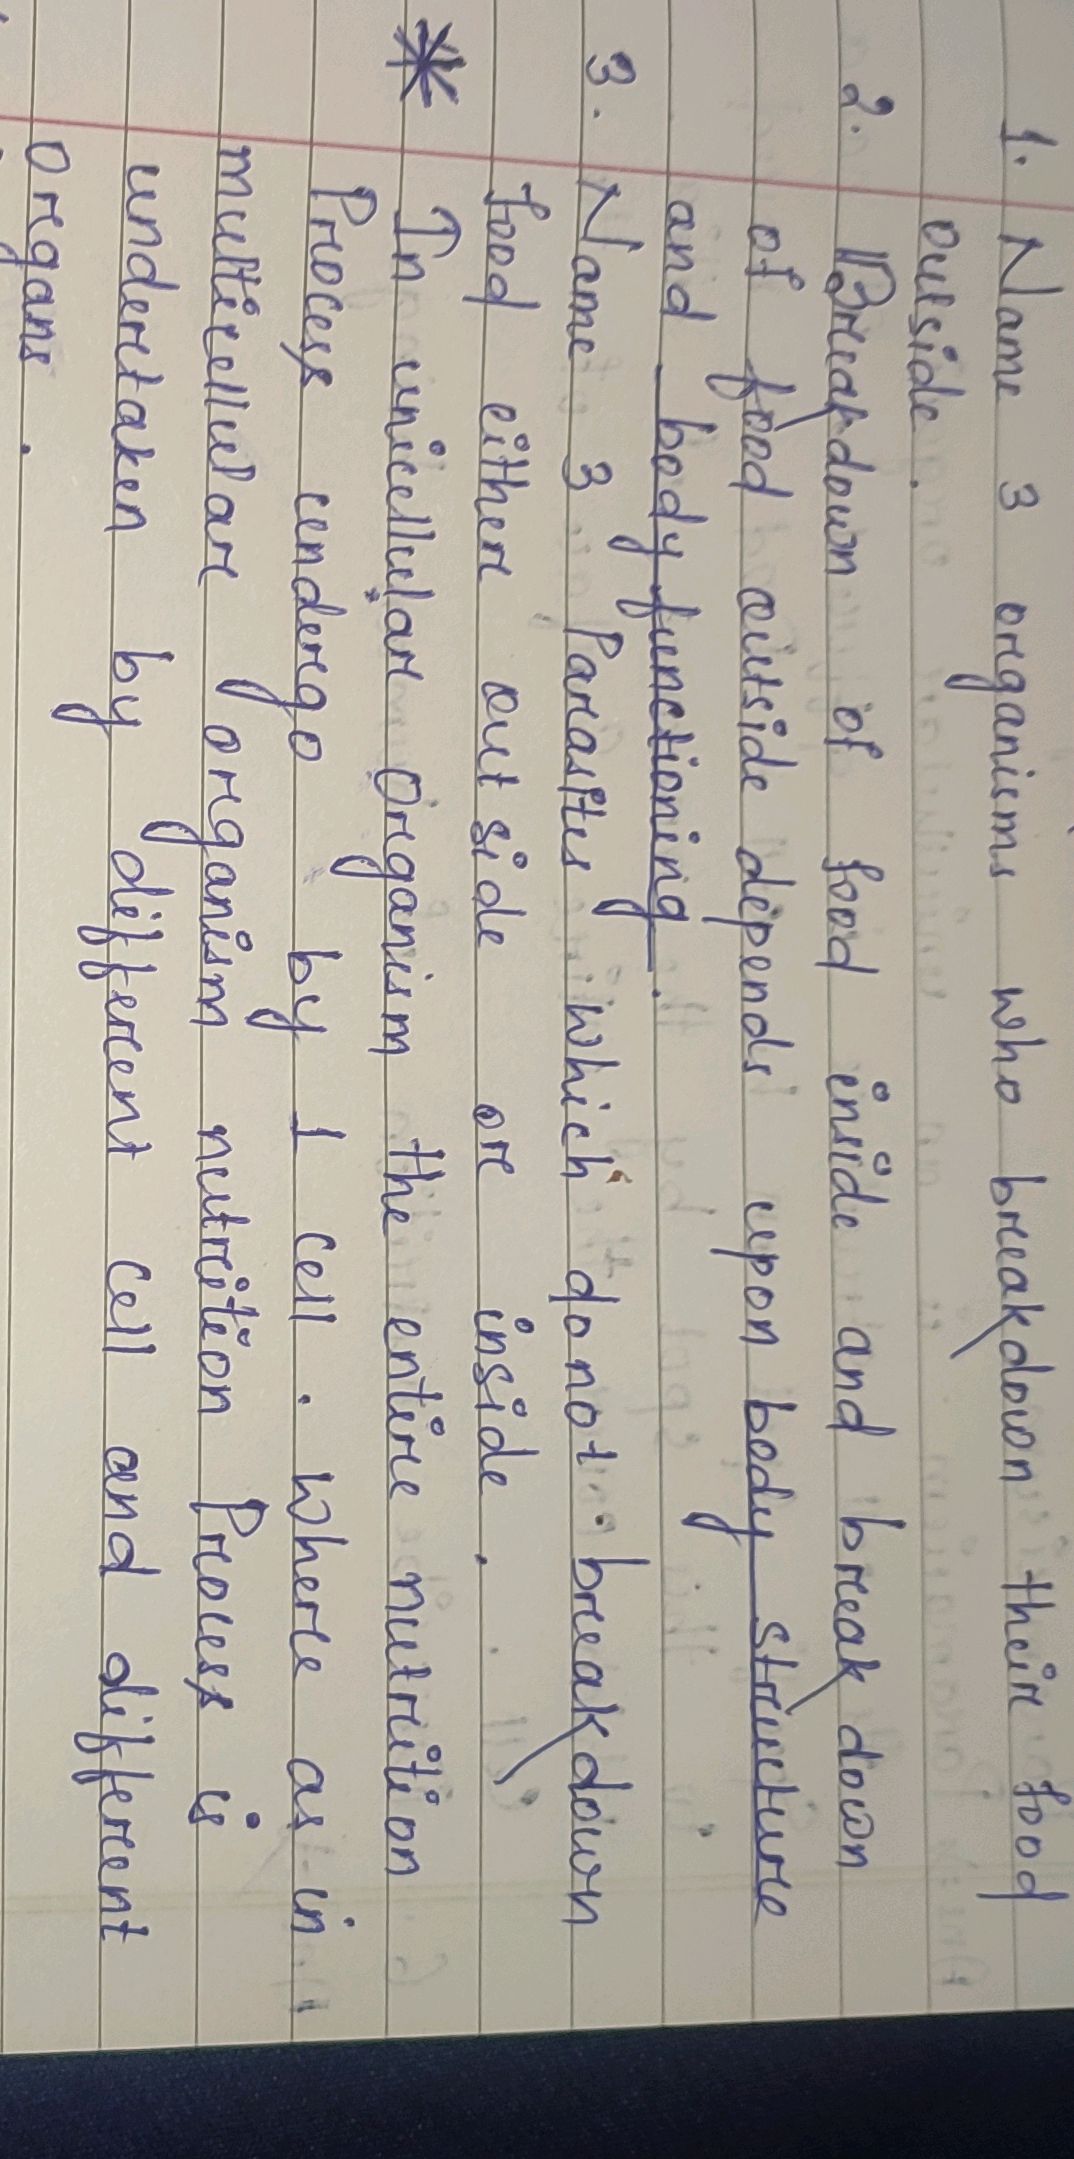 1. Name 3 organisms who breakdown their food
outside.
2. Breakdown of food inside and break down
of food outside depends upon body structure
and body functioning.
3. Name 3 Parasites which do not breakdown
food either outside or inside.
* In unicellular Organism the entire nutrition
Process undergo by 1 cell. where as in
multicellular organism nutrition Process is
undertaken by different cell and different
organs.